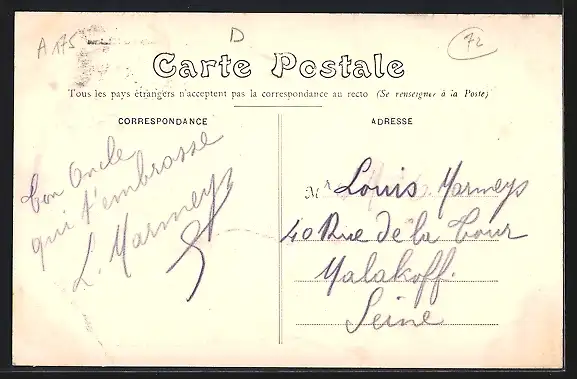 A 175
D
72
Carte Postale
Tous les pays étrangers n'acceptent pas la correspondance au recto (Se renseigner à la Poste)
CORRESPONDANCE
Ton Oncle
qui t'embrasse
L. Marmeys
ADRESSE
Mr Louis Marmeys
40 Rue de la Tour
Malakoff.
Seine